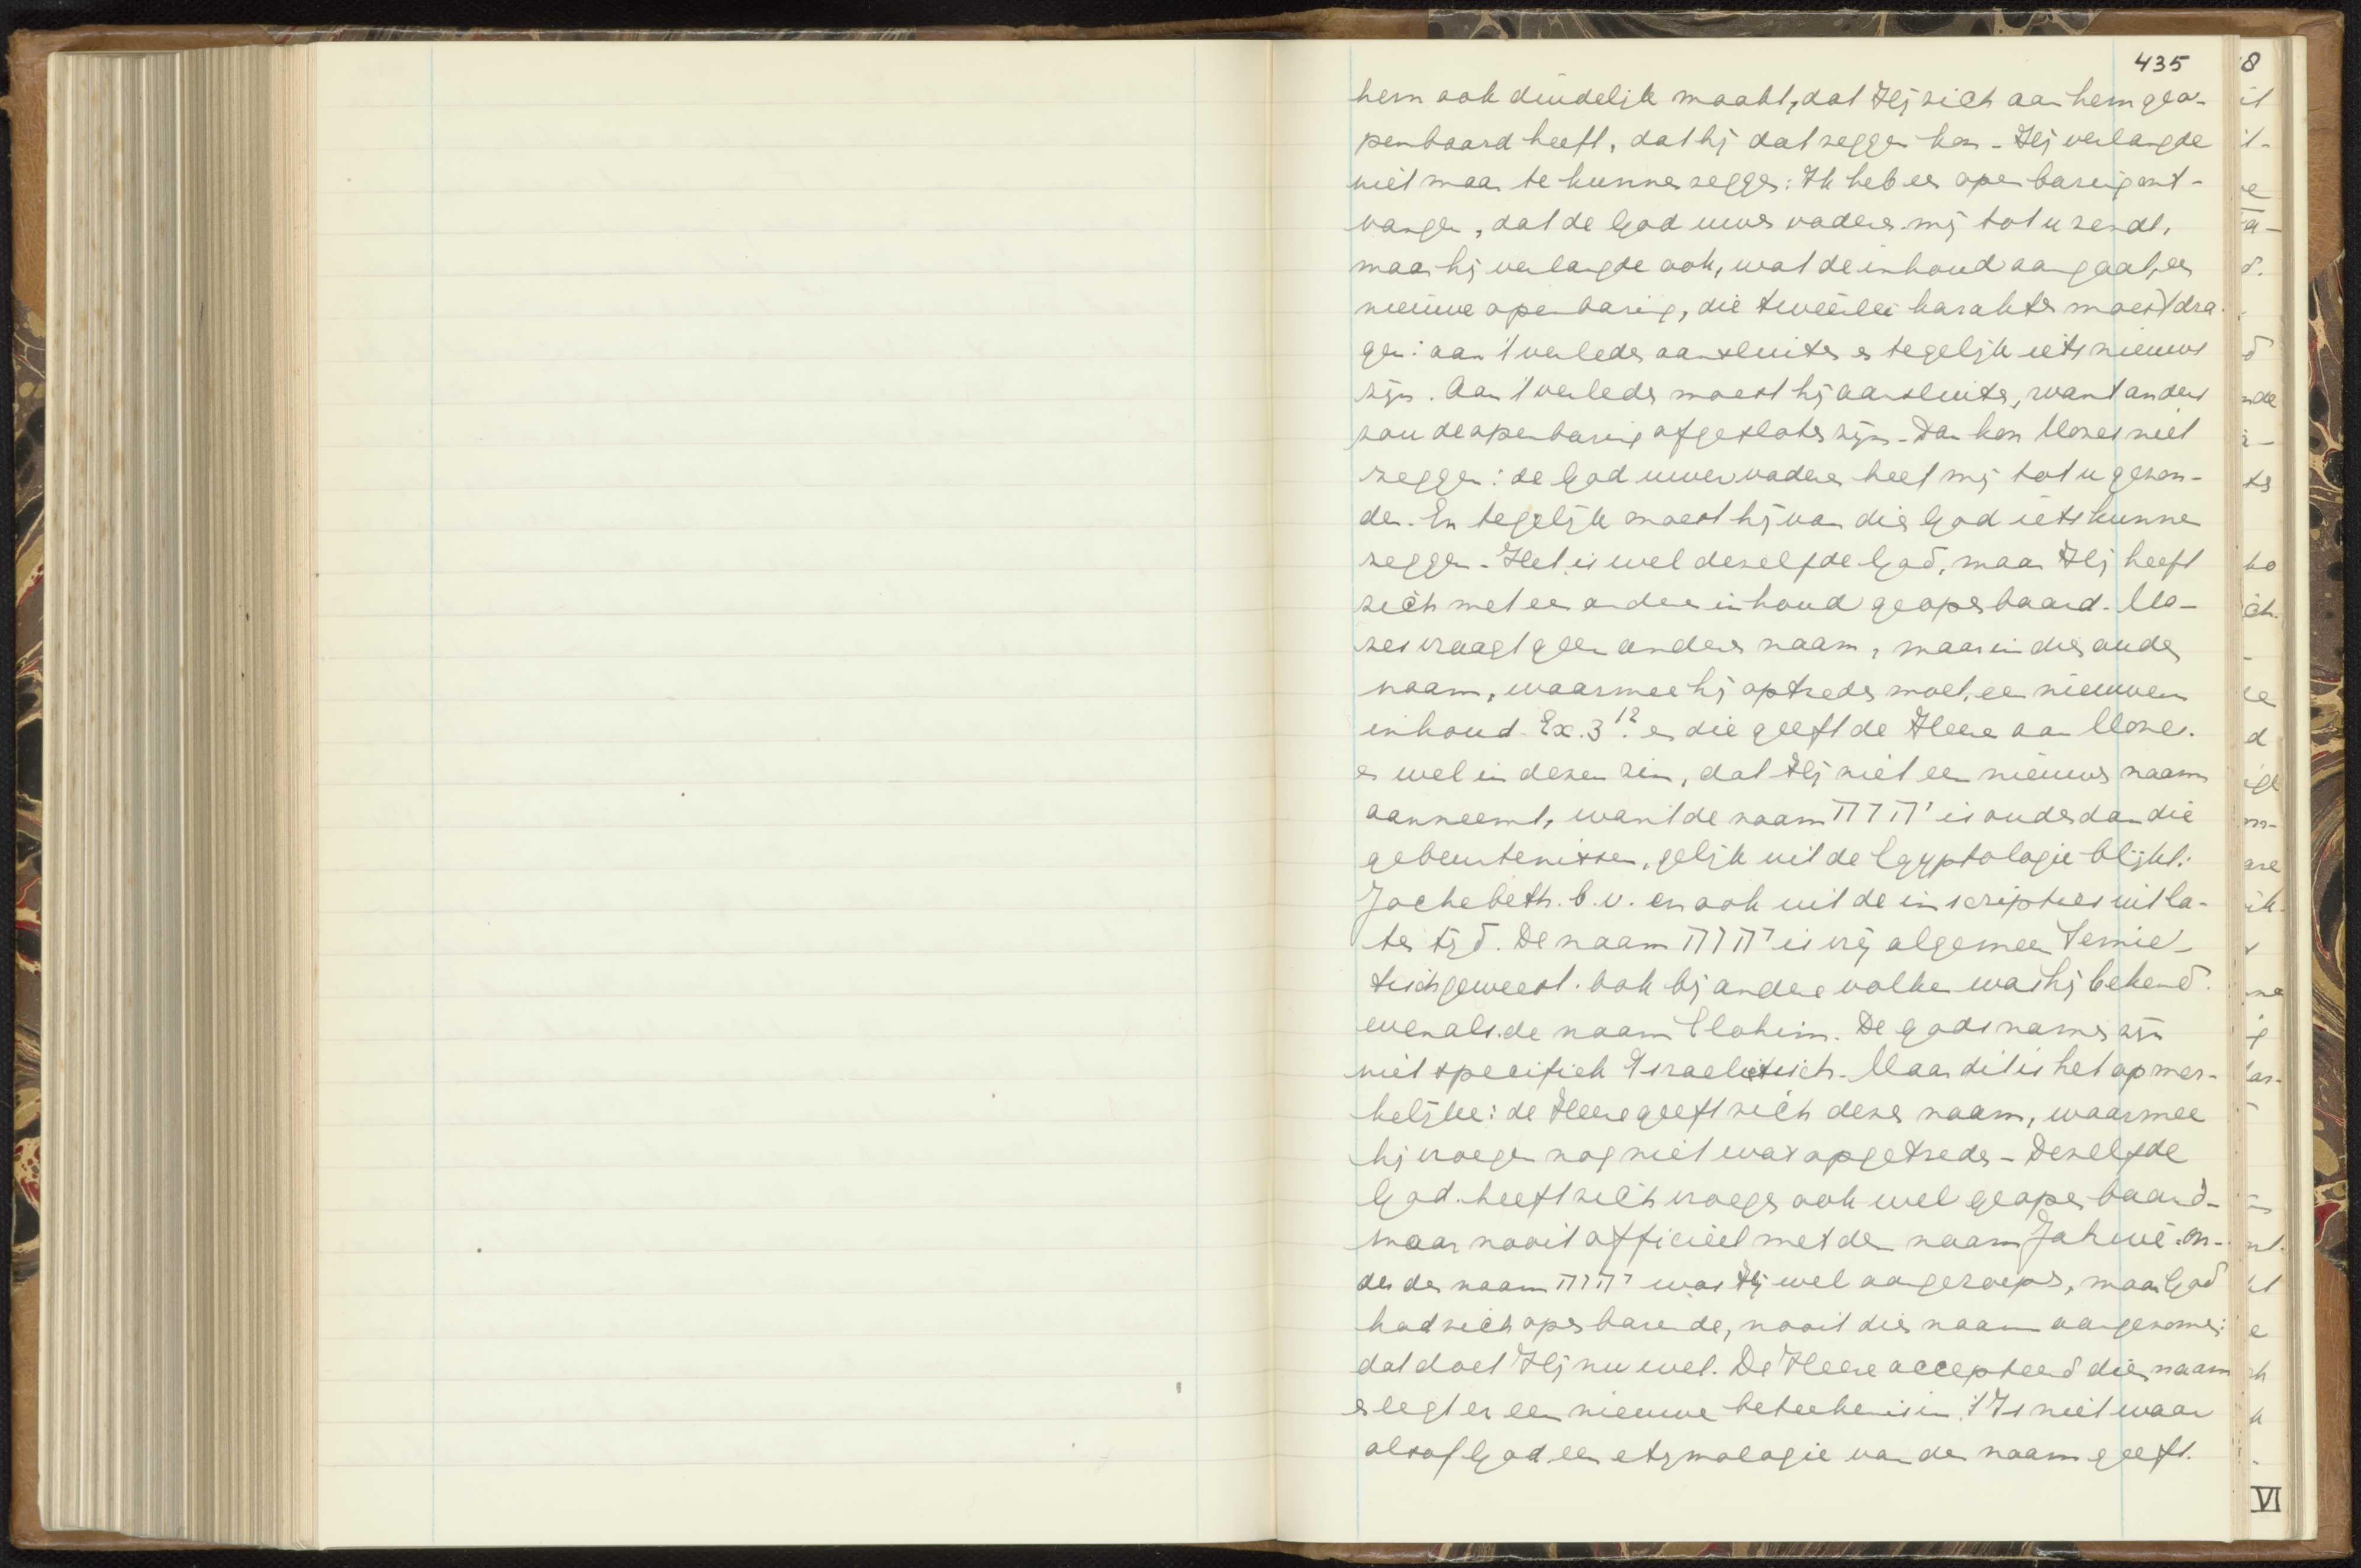 435
hem ook duidelijk maakt, dat Hij zich aan hem geo-
penbaard heeft, dat hij dat zeggen kon - Hij verlangde
niet maar te kunnen zeggen: Ik heb een openbaring ont-
vangen, dat de God uwer vaderen mij tot u zendt,
maar hij verlangde ook, wat de inhoud aangaat, een
nieuwe openbaring, die tweeërlei karakter moest dra-
gen: aan 't verleden aansluiten en tegelijk iets nieuws
zijn. Aan 't verleden moest hij aansluiten, want anders
zou de openbaring afgesloten zijn - Dan kon Mozes niet
zeggen: de God uwer vaderen heet mij tot u gezon-
den. En tegelijk moest hij van dien God iets kunnen
zeggen - Het is wel dezelfde God, maar Hij heeft
zich met een andere inhoud geopenbaard. Mo-
zes vraagt geen anderen naam, maar in dien ouden
naam, waarmee hij optreden moet, een nieuwen
inhoud. Ex. 3 12. en die geeft de Heere aan Mozes.
en wel in dezen zin, dat Hij niet een nieuwen naam
aanneemt, want de naam יהוה is ouder dan die
gebeurtenissen, gelijk uit de Egyptologie blijkt:
Jochebeth. b.v. en ook uit de inscripties uit la-
ter tijd. De naam יהוה is vrij algemeen Semie-
tisch geweest. ook bij andere volken was hij bekend.
evenals de naam Elohim. De godsnamen zijn
niet specifiek Israelietisch. Maar dit is het opmer-
kelijke: de Heere geeft zich dezen naam, waarmee
hij vroeger nog niet was opgetreden - Dezelfde
God heeft zich vroeger ook wel geopenbaard -
maar nooit officiëel met den naam Jahwé. on-
der den naam יהוה was Hij wel aangeroepen, maar God
had zich openbarende, nooit dien naam aangenomen:
dat doet Hij nu wel. De Heere accepteerd dien naam
en legt er een nieuwe beteekenis in. 't Is niet waar
alsof God een etymologie van den naam geeft.
VI